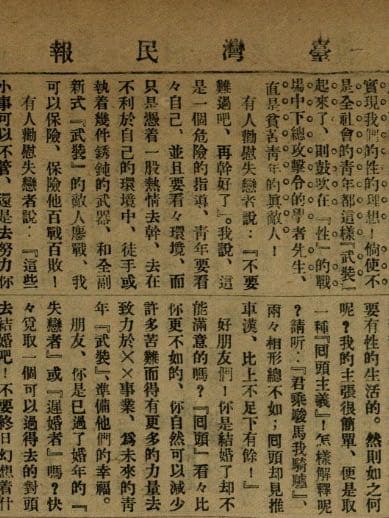 臺灣民報
實現我們的性的理想！倘使不
是全社會的青年都這樣『武裝』
起來了、則鼓吹在『性』的戰
場中下總攻擊令的學者先生、
直是貧苦靑年的眞敵人！
有人勸慰失戀者說：『不要
難過吧、再幹好了』。我說、這
是一個危險的指導、靑年要看
々自己、並且要看々環境、而
只是憑着一股熱情去幹、去在
不利於自己的環境中、徒手或
執着幾件銹鈍的武器、和全副
新式『武裝』的敵人鏖戰、我
可以保險、保險他百戰百敗！
有人勸慰失戀者說：『這些
小事可以不管、還是去努力你
要有性的生活的。然則如之何
呢？我的主張很簡單、便是取
一種『囘頭主義』！怎樣解釋呢
？請听：『君乘駿馬我騎驢、
兩々相形總不如；囘頭却見推
車漢、比上不足下有餘！』
好朋友們！你是結婚了却不
能滿意的嗎？『囘頭』看々比
你更不如的、你自然可以減少
許多苦難而得有更多的力量去
致力於××事業、爲未來的靑
年『武裝』、準備他們的幸福。
朋友、你是已過了婚年的『
失戀者』或『遲婚者』嗎？快
々覓取一個可以過得去的對頭
去結婚吧！不要終日幻想着什